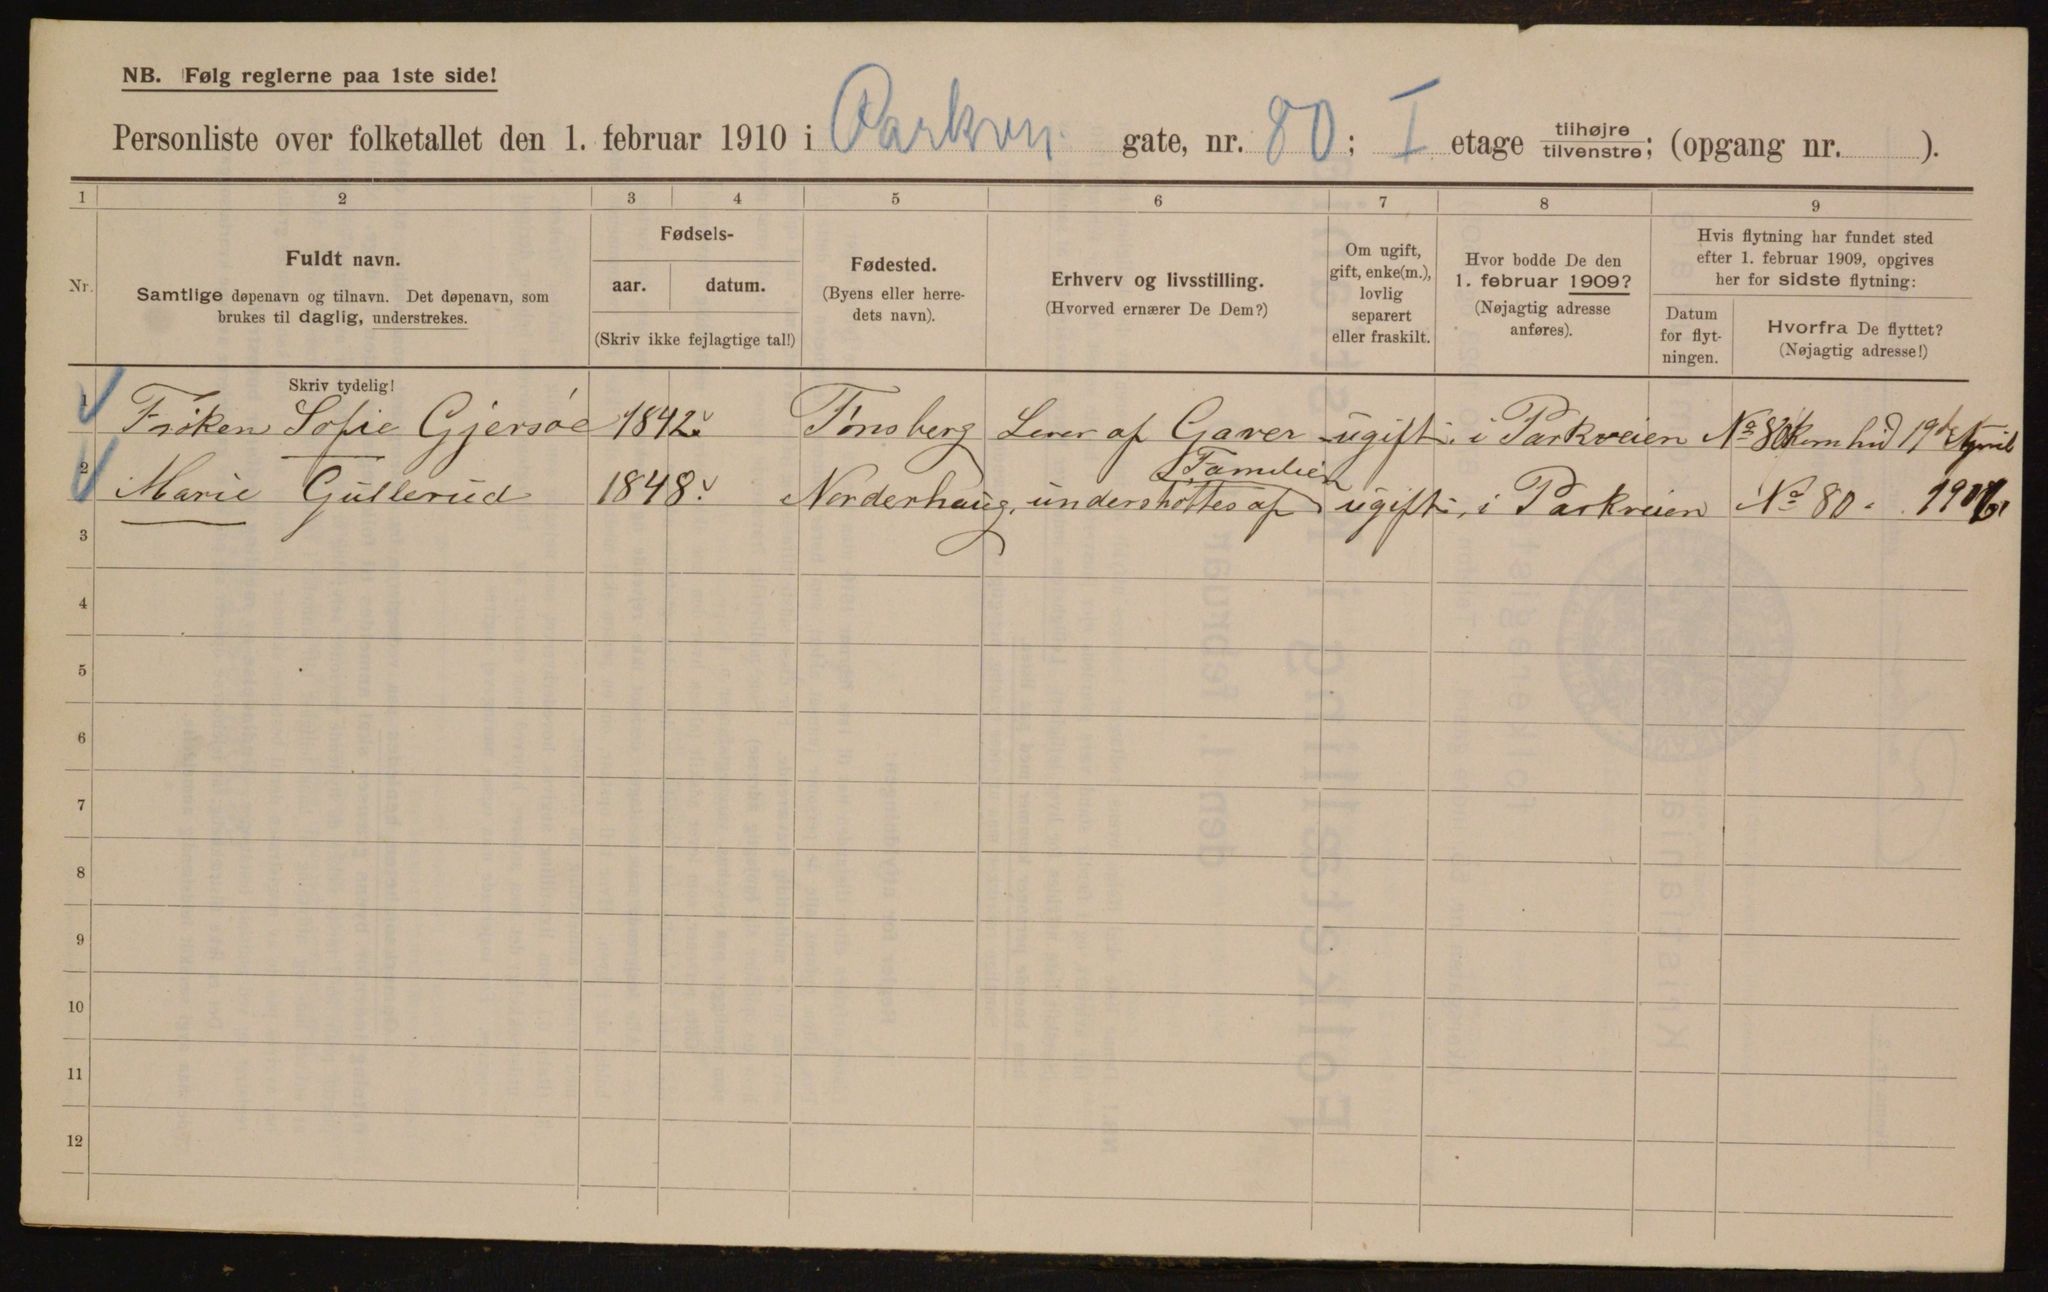 NB. Følg reglerne paa 1ste side!
Personliste over folketallet den 1. februar 1910 i Parkven gate, nr. 80; I etage tilhøjre/tilvenstre; (opgang nr. ).
1 2 3 4 5 6 7 8 9
Nr.
Fuldt navn.
Samtlige døpenavn og tilnavn. Det døpenavn, som
brukes til daglig, understrekes.
Fødsels-
aar. datum.
(Skriv ikke fejlagtige tal!)
Fødested.
(Byens eller herre-
dets navn).
Erhverv og livsstilling.
(Hvorved ernærer De Dem?)
Om ugift,
gift, enke(m.),
lovlig
separert
eller fraskilt.
Hvor bodde De den
1. februar 1909?
(Nøjagtig adresse
anføres).
Hvis flytning har fundet sted
efter 1. februar 1909, opgives
her for sidste flytning:
Datum
for flyt-
ningen.
Hvorfra De flyttet?
(Nøjagtig adresse!)
Skriv tydelig!
1 Frøken Sofie Gjersøe 1842. Tønsberg Lever af Gaver ugift. i Parkveien No 80 kom hid 19de April
2 Marie Gullerud 1848. Norderhaug, understøttes af Familien ugift, i Parkveien No 80.
3
4
5
6
7
8
9
10
11
12